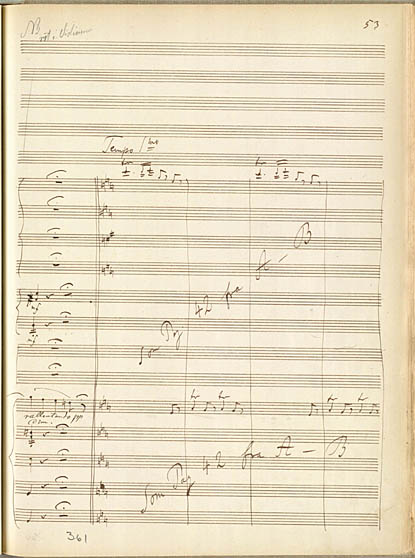 NB
53
Tempo Imo
Som Pag 42 fra A - B
rallentando pp
Som Pag 42 fra A - B
361